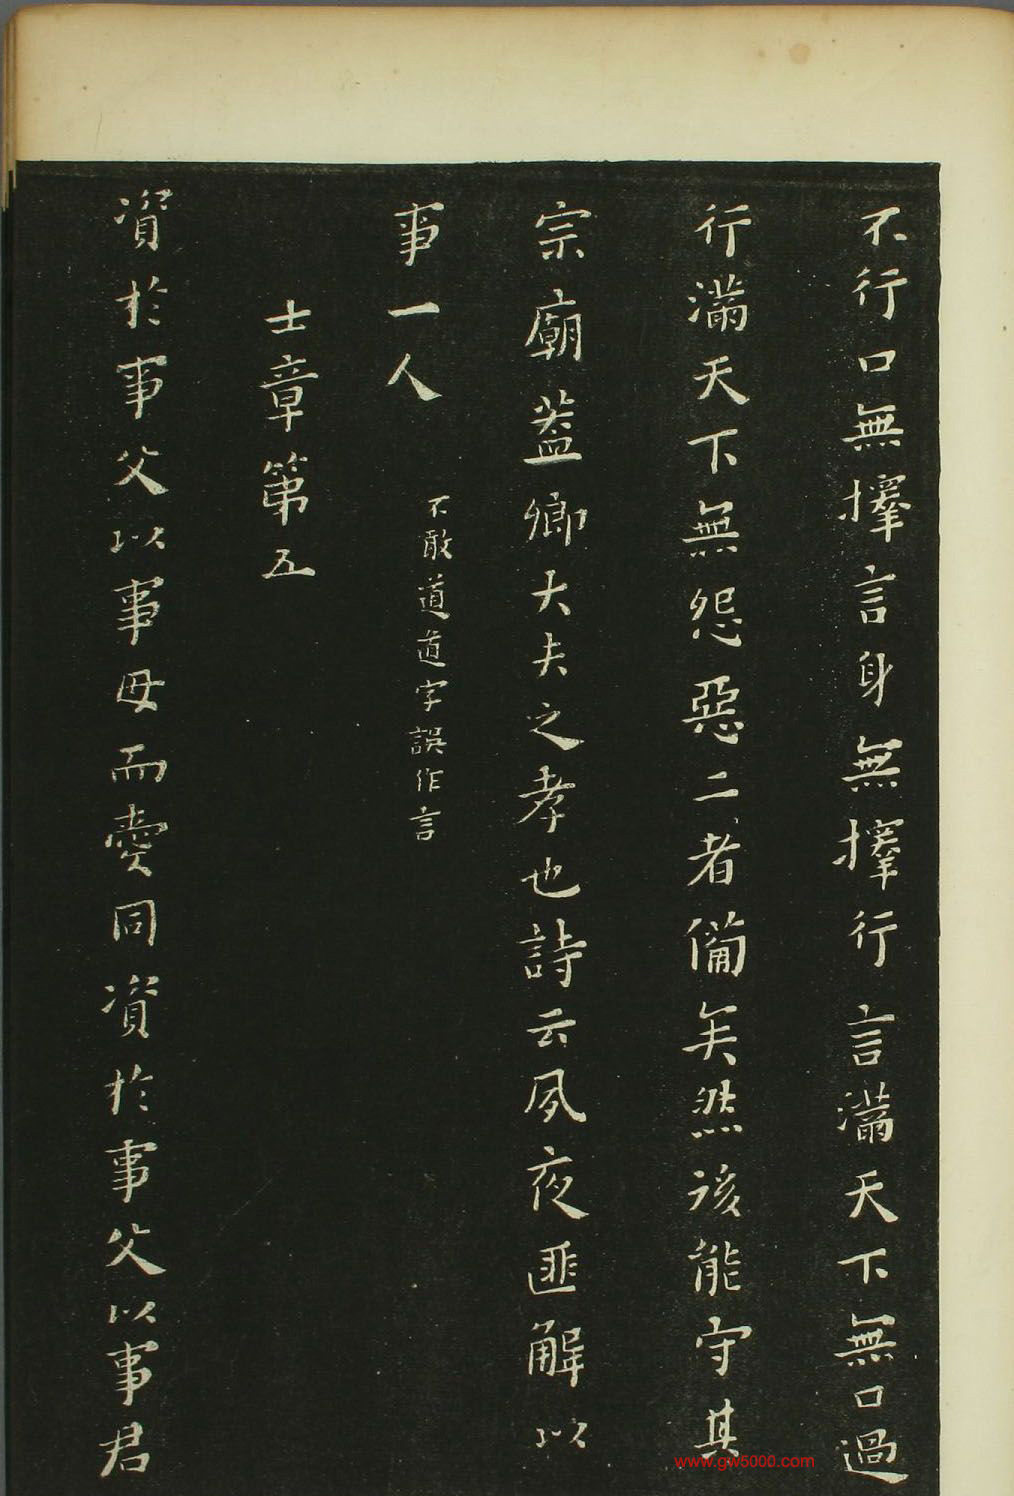 不行口無擇言身無擇行言滿天下無口過
行滿天下無怨惡二者備矣然後能守其
宗廟蓋卿大夫之孝也詩云夙夜匪解以
事一人
不敢道道字誤作言
士章第五
資於事父以事母而愛同資於事父以事君
www.gw5000.com